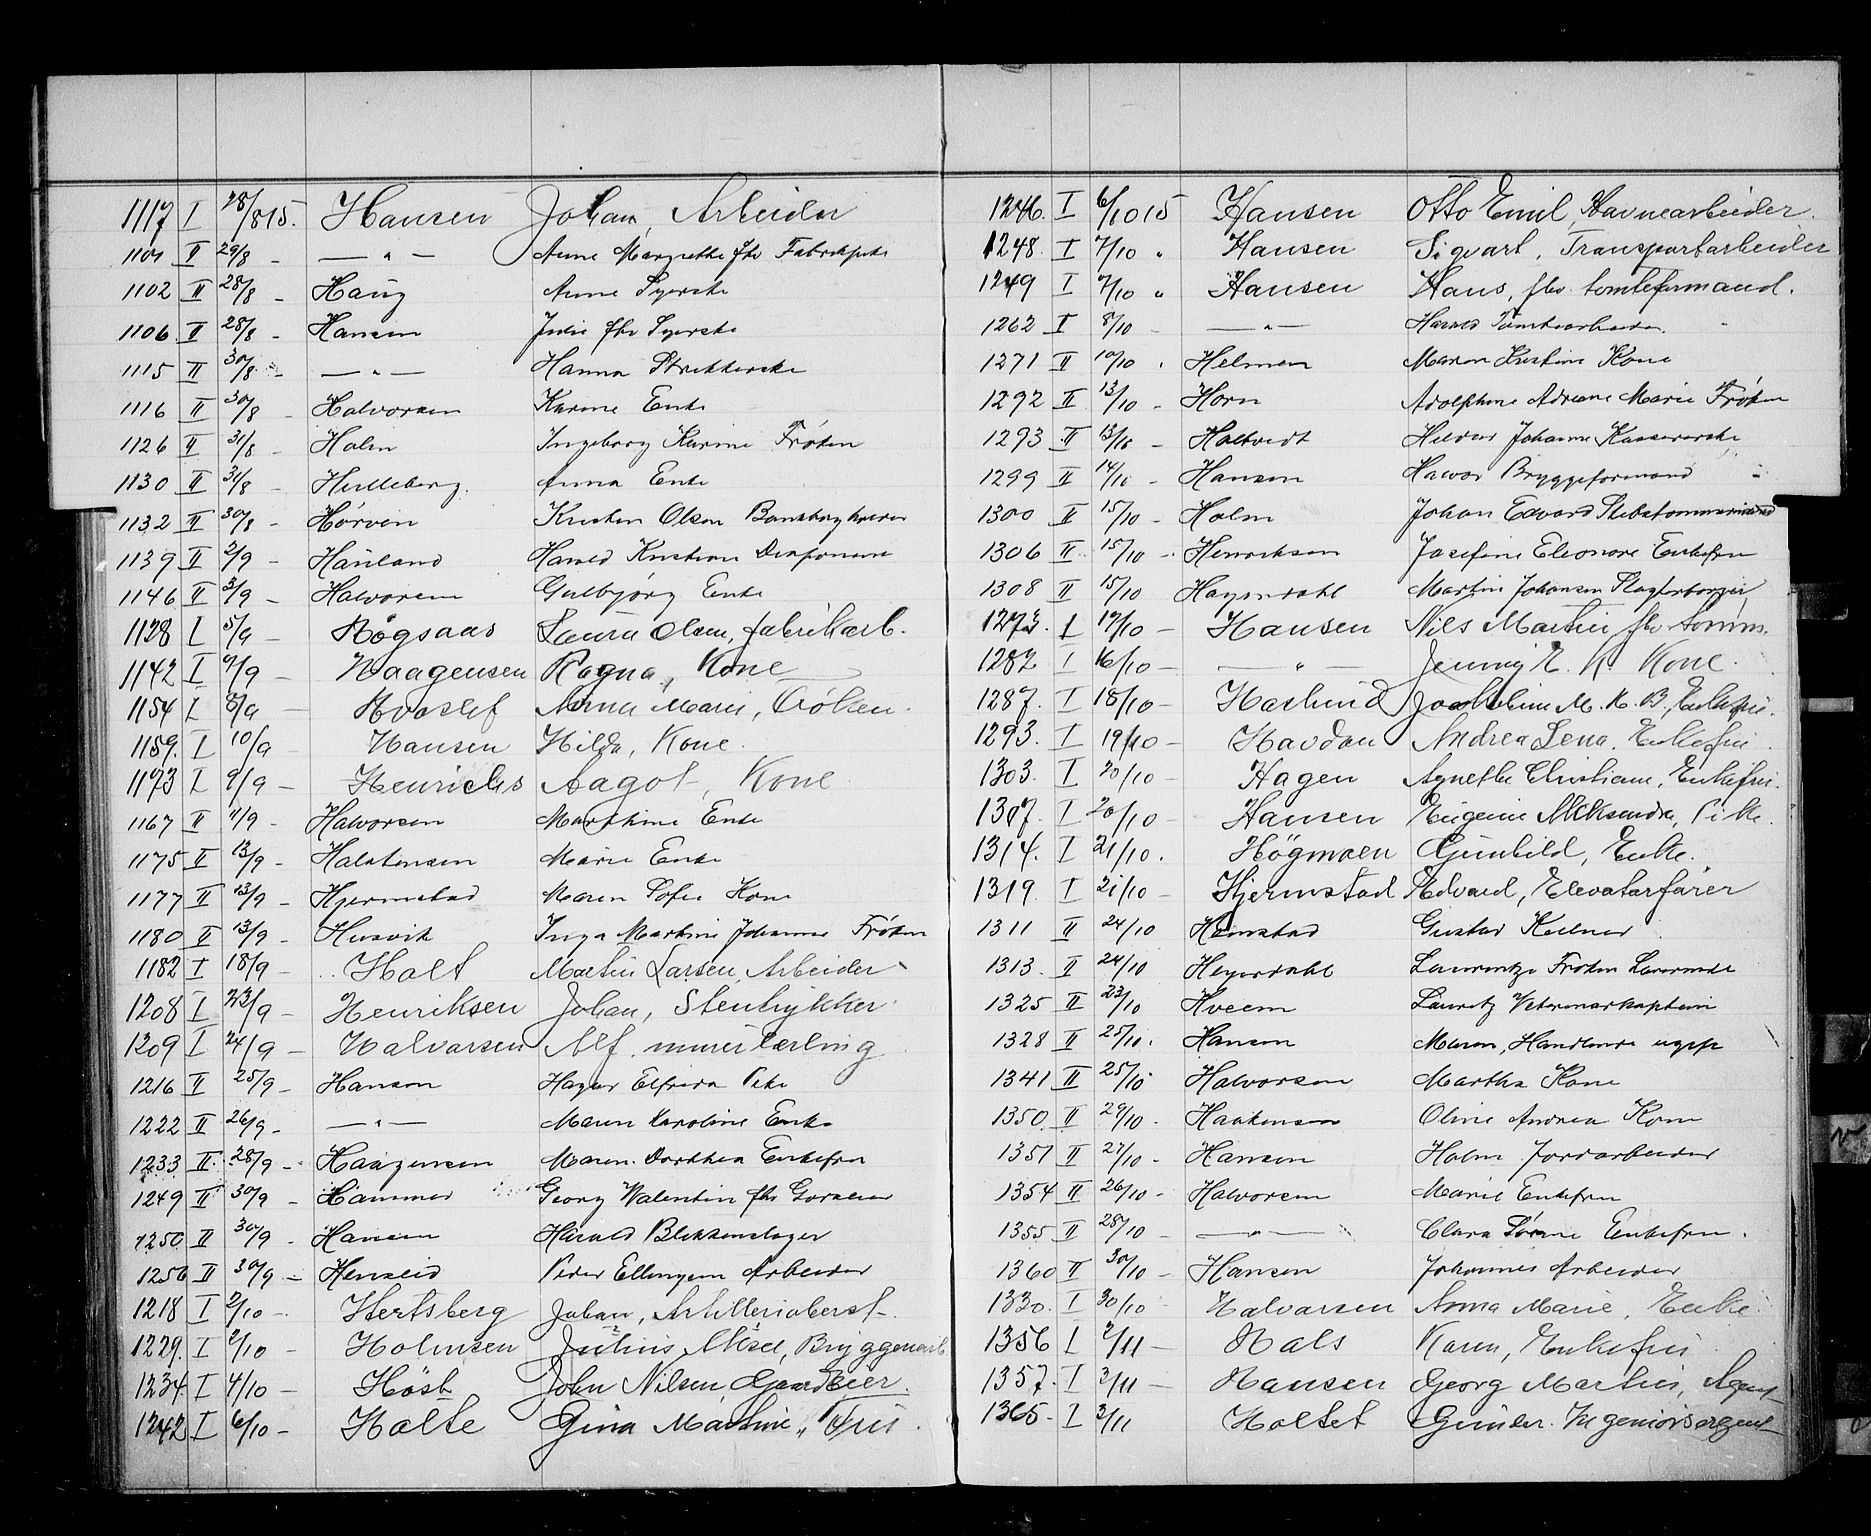 1117 I 28/8 15. Hansen Johan, Arbeider
1101 II 29/8 - —„— Anne Margrethe fhv Fabrikpike
1102 II 28/8 - Haug Anne Syerske
1106 II 28/8 - Hansen Julie fhv Syerske
1115 II 30/8 - —„— Hanna Strikkerske
1116 II 30/8 - Halvorsen Karine Enke
1126 II 31/8 - Holm Ingeborg Karine Frøken
1130 II 31/8 - Hilleberg. Anna Enke
1132 II 30/8 - Hørven Kristen Olsen
1139 II 2/9 - Hauland Harald Kristian
1146 II 3/9 - Halvorsen Gulbjørg Enke
1128 I 5/9 - Høgsaas Laura Olsen, fabrikarb.
1142 I 7/9 - Haagensen Ragna, Kone
1154 I 8/9 - Hvoslef Anna Marie, Frøken.
1159. I 10/9 - Hansen Hilda, Kone.
1173 I 9/9 - Henrichs Aagot, Kone
1167 II 11/9 - Halvorsen Marthine Enke
1175 II 13/9 - Halstensen Marie Enke
1177 II 13/9 - Hjermstad Maren Sofie Kone
1180 II 13/9 - Husvik Inga Martine Johanne Frøken
1182 I 18/9 - Holt Martin Larsen, Arbeider
1208 I 23/9 - Henriksen Johan, Stentrykker
1209 I 24/9 - Halvorsen Alf. murerlærling
1216 II 25/9 - Hansen Hagar Elfrida Pike
1222 II 26/9 - —„— Maren Karoline Enke
1233 II. 28/9 - Haagensen Maren Dorthea Enkefru
1249 II 30/9 - Hammer Georg Valentin fhv Gørtler
1250 II 30/9 - Hansen Harald Blikkenslager
1256 II 30/9 - Henseid Peder Ellingsen Arbeider
1218 I 2/10 - Hertsberg Johan, Artillerioberst
1229. I 2/10 - Holmsen Julius Aksel, Bryggearb
1234. I 4/10 - Høst John Nilsen, Gaardeier.
1242 I 6/10 - Holte Gina Martine, Fru.
1246. I 6/10 15 Hansen Otto Emil, Havnearbeider.
1248. I 7/10 „ Hansen Sigvart, Transportarbeider
1249 I 7/10 „ Hansen Hans, fhv. tomteformand.
1262 I 8/10 - —„— Harald Tomtearbeider.
1271 II 10/10 . Helmen Maren Kristine Kone
1292 II 13/10 - Horn Adolphine Adriane Marie Frøken
1293 II 13/10 - Holtvedt Hildur Johanne Kassererske
1299 II 14/10 - Hansen Halvor Bryggeformand
1300 II 15/10 - Holm Johan Edvard Skibstømmermand
1306 II 15/10 - Henriksen Josefine Eleonore Enkefru
1308 II 15/10 Heyerdahl Martin Johansen Slagterborger
1273. I 17/10 - Hansen Nils Martin fhv tomm.
1282 I 16/10 - —„— Jenny E. K. Kone.
1287. I 18/10 - Haslund M. K. B, Enkefru.
1293. I 19/10 - Havdan Andrea Lena, Enkefru.
1303. I 20/10 - Hagen Agnethe Christiane, Enkefru.
1307. I 20/10 - Hansen Eugenie Aleksandra, Pike.
1314. I 21/10. Høgmoen Gunhild, Enke.
1319. I 21/10 - Hjermstad Edvard, Elevatorfører
1311 II 24/10 Hemstad Gustav Kelner
1313. II 24/10 Heyerdahl Laurentze Frøken Lærerinde
1325 II 23/10 Hveem Lauritz Veterinærkaptein
1328 II 25/10. Hansen Maren, Handlende ugift
1341 II 25/10 Halvorsen Martha Kone
1350. II 29/10. Haakensen Oline Andrea Kone
1351 II 27/10 - Hansen Holm Jordarbeider
1354 II 26/10 - Halvorsen Marie Enkefru
1355 II 28/10 - —„— Clara Lovise Enkefru.
1360 II 30/10 - Hansen Johannes Arbeider
1330. I 30/10 - Halvorsen Anna Marie, Enke.
1356 I 2/11 - Hals Karen, Enkefru
1357. I 3/11 - Hansen Georg Martin, Agent
1365. I 3/11 Holtet Gunder. Ingeniørsagent